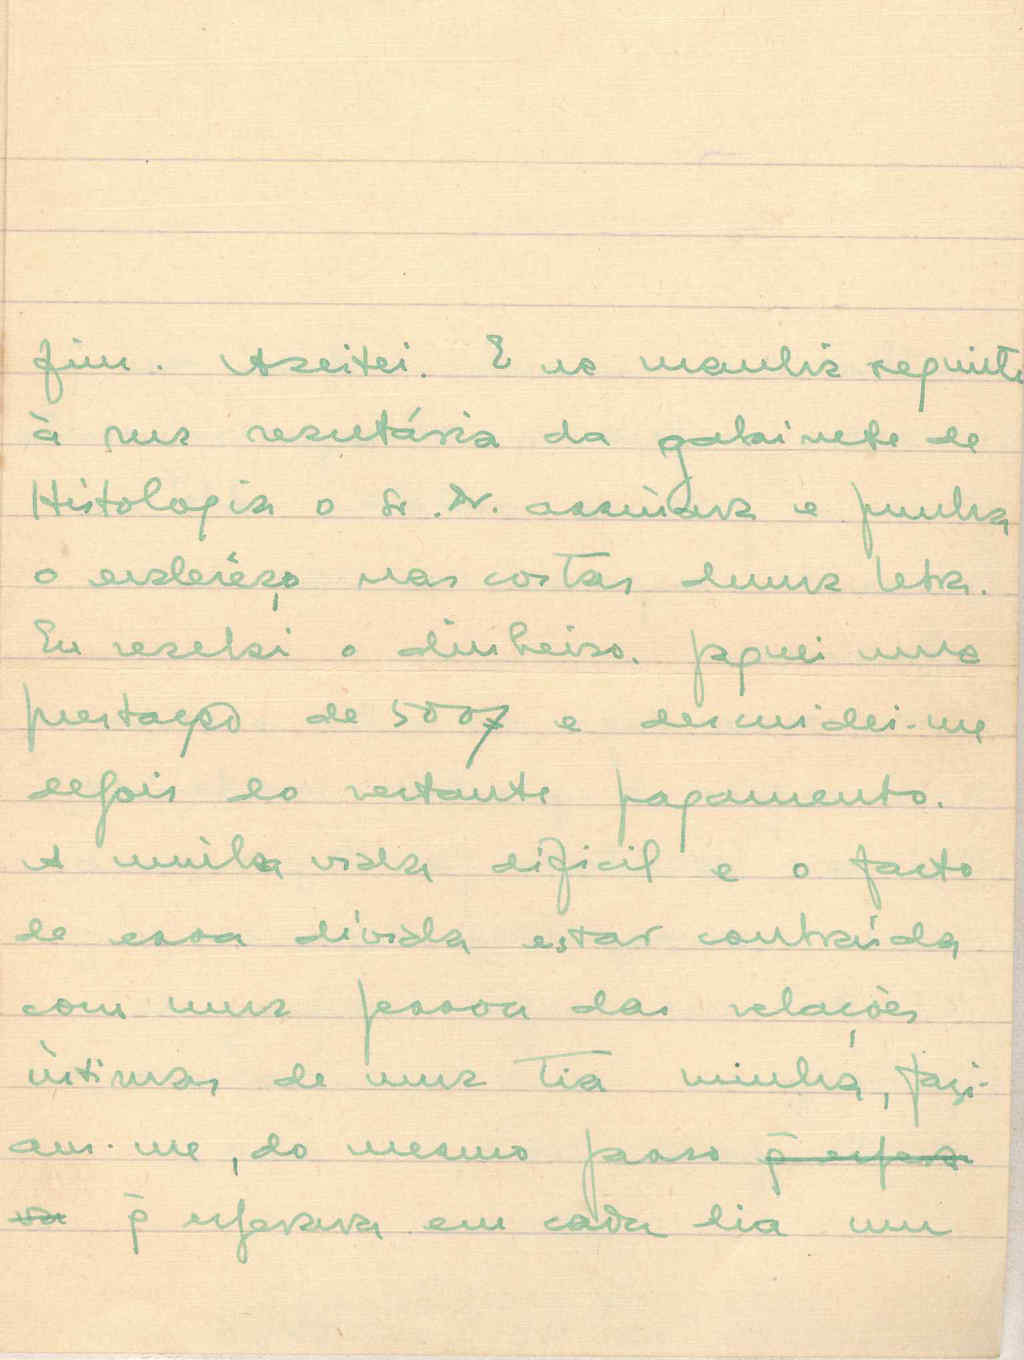 fim. Aceitei. E na manhã seguinte
à sua secretária do gabinete de
Histologia o Sr. Dr. assinava e punha
o enderêço nas costas duma letra.
Eu recebi o dinheiro. Paguei uma
prestação de 500$ e descuidei-me
depois do restante pagamento.
A minha vida dificil e o facto
de essa dívida estar contraída
com uma pessoa das relações
íntimas de uma tia minha, fazi-
am-me, do mesmo passo q̃ espera
va q̃ esperava em cada dia um